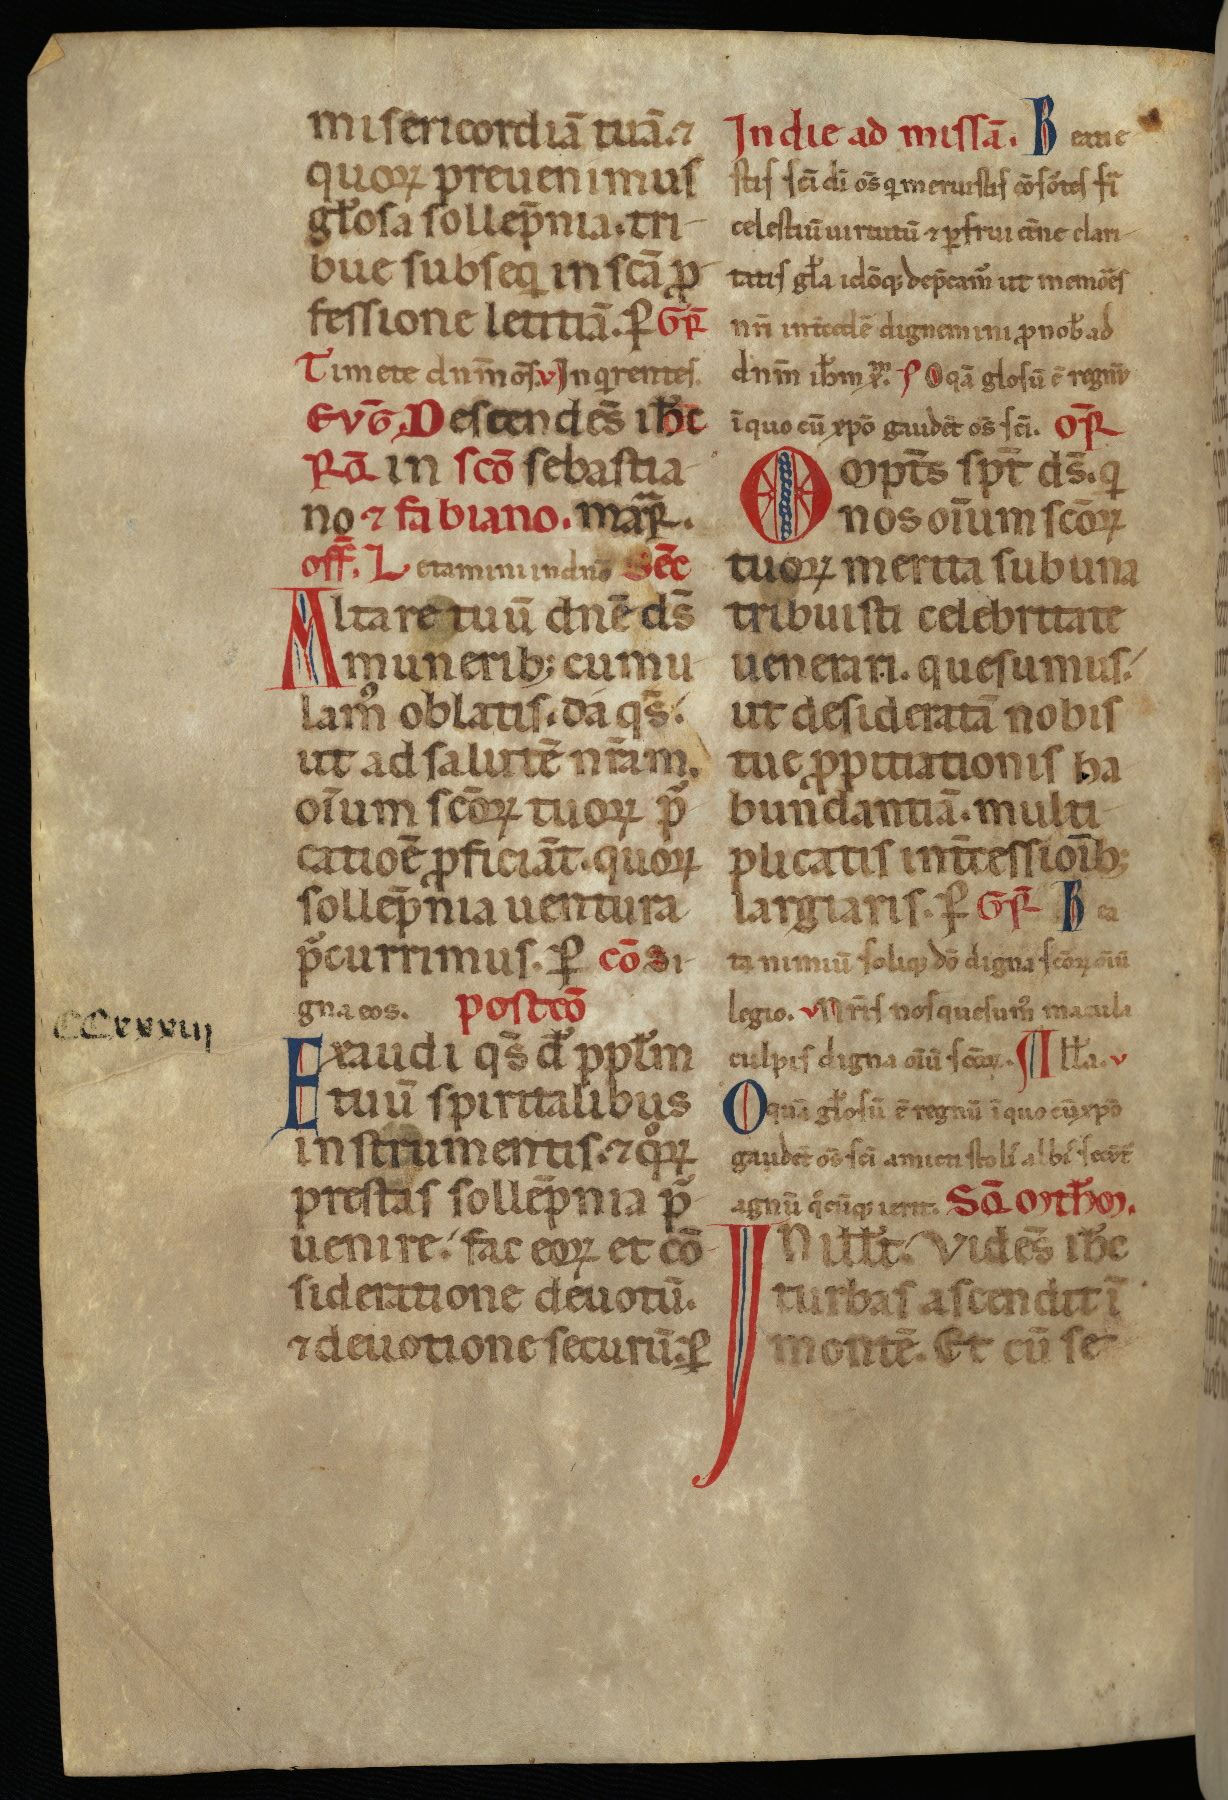 misericordiā tuā. ⁊
quoꝝ preuenimus
gło̅sa sollep̄nia. tri-
bue subseq in sc̄ā ꝓ-
fessione letitiā. ꝑ Gr̄
Timete dnm̄ om̄s. v Inqrentes.
Evḡ. Descendēs ih̄c
Rq̄ in sc̄o sebastia-
no ⁊ fabiano. mar̄.
off̄. Letamini in dn̄o Sēc
Altare tuū dn̄e ds̄
munerib; cumu-
lam᷒ oblatis. da qs̄.
ut ad salutē nr̄am.
oīum sc̄oꝝ tuoꝝ p̄-
catioē ꝓficiāt. quoꝝ
sollep̄nia uentura
p̄currimus. ꝑ cō Di-
gna eos. postcō
CCxxxviij
Exaudi qs̄ d̄s ppłm
tuū spiritalibus
instrumentis. ⁊ qͦꝝ
prestas sollep̄nia p̄-
uenire. fac eoꝝ et cō-
sideratione deuotū.
⁊ deuotione securū. ꝑ
In die ad missā. Beati e-
stis sc̄i dī om̄s q meruistis cōsortes fi
celestiū uirtutū ⁊ ꝑfrui etīne clari-
tatis gła idōq; dep̄cam᷒ ut memores
nr̄i int̄cedē dignemini ꝓ nob̄ ad
dnm̄ ih̄m xp̄m. O qā glosū ē regnū
ī quo cū xpō gaudēt om̄s sc̄i. Or̄
Omp̄ts sp̄t ds̄. q
nos oīum sc̄oꝝ
tuoꝝ merita sub una
tribuisti celebritate
uenerari. quesumus.
ut desideratā nobis
tue ꝓpitiationis ha-
bundantiā. multi-
plicatis int̄cessioīb;
largiaris. ꝑ Gr̄ Bea-
ta nimiū soliq; dō digna sc̄oꝝ oīū
legio. v Nr̄is nos quesum᷒ macula
culpis digna oīū sc̄oꝝ. Alła. v
O quā głosū ē regnū ī quo cū xpō
gaudēt om̄s sc̄i amicti stolī albī secūt
agnū qͦcūq; ierit. Sq̄ Mth̄m.
IN ill̄ t. Vidēs ih̄c
turbas ascendit ī
montē. Et cū se-